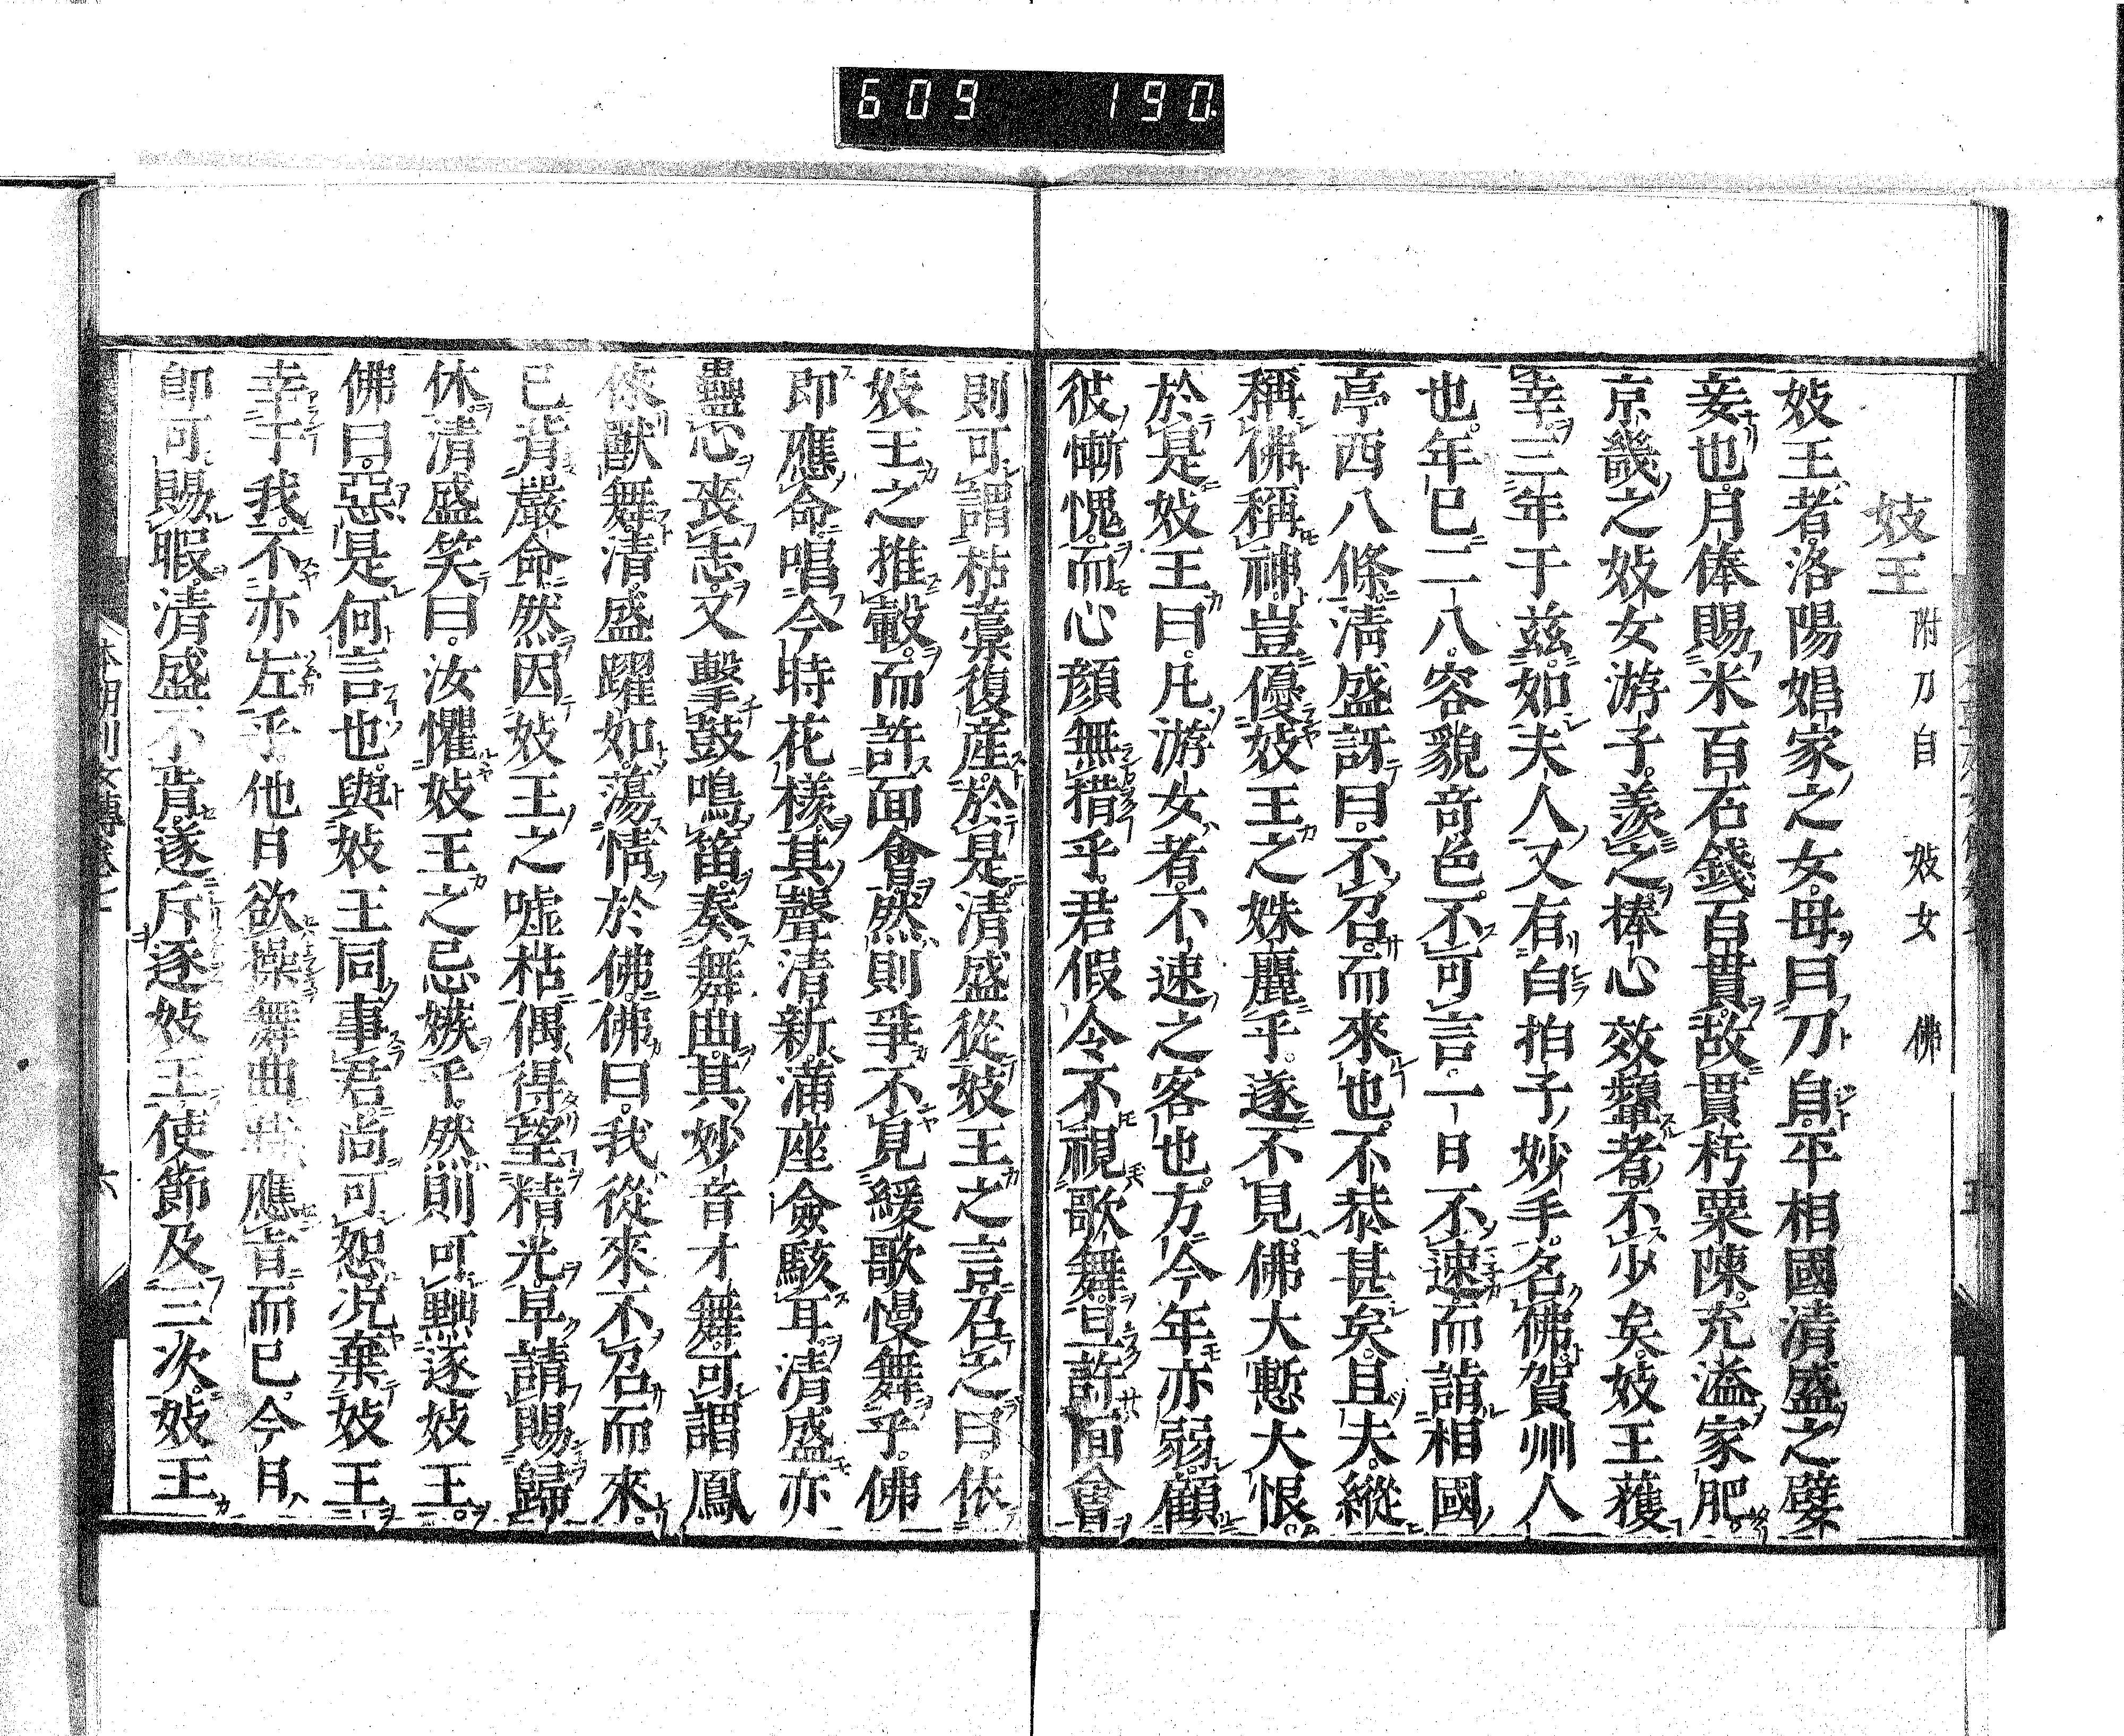 609 190
妓王 附刀自 妓女 佛
妓王者洛陽娼家之女母曰刀自平相國清盛之嬖
妾也月俸賜米百石錢百貫故貫朽粟陳充溢家肥
京畿之妓女游子羨之捧心效顰者不少矣妓王獲
幸三年于茲如夫人又有白拍子妙手名佛賀州人
也年已二八容貌奇色不可言一日不速而詣相國
亭西八條清盛訝曰不召而來也不恭甚矣且夫縱
稱佛稱神豈優妓王之姝麗乎遂不見佛大慙大恨
於是妓王曰凡游女者不速之客也方今年亦弱顧
彼慚愧而心顏無措乎君假令不視歌舞且許面會
則可謂枯藁復産於是清盛從妓王之言召之曰依
妓王之推轂而許面會然則爭不見緩歌慢舞乎佛
即應命唱今時花樣其聲清新滿座僉駭耳清盛亦
蠱心喪志又擊鼓鳴笛奏舞曲其妙音才舞可謂鳳
儀獸舞清盛躍如蕩情於佛佛曰我從來不召而來
已背嚴命然因妓王之噓枯偶得望精光早請賜歸
休清盛笑曰汝懼妓王之忌嫉乎然則可黜逐妓王
佛曰惡是何言也與妓王同事君尚可恕況棄妓王
幸于我不亦左乎他日欲操舞曲則應旨而已今日
即可賜暇清盛不肯遂斥逐妓王使節及三次妓王
本朝列女傳卷七 六